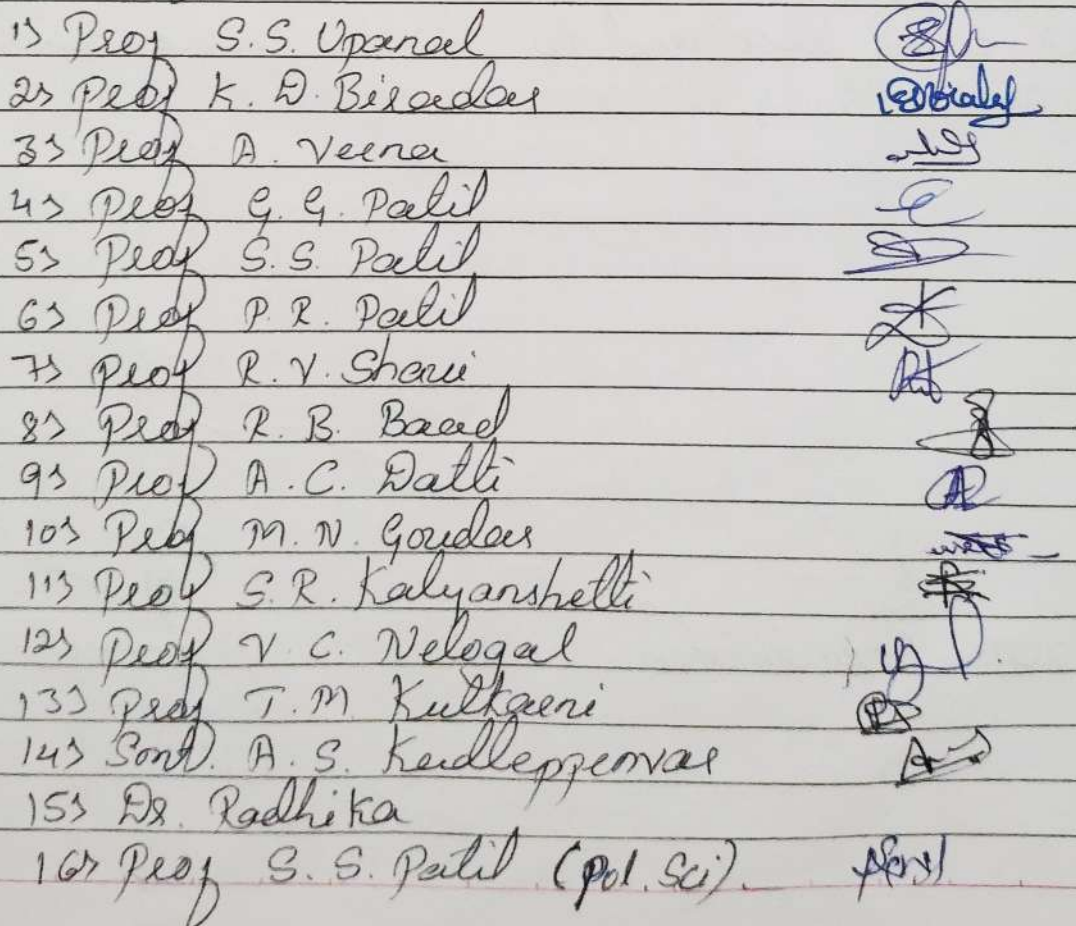 1) Prof S.S. Upanal
2) Prof K. D. Biradar
3) Prof A. Veena
4) Prof G. G. Patil
5) Prof S.S. Patil
6) Prof P. R. Patil
7) Prof R. V. Shavi
8) Prof R. B.
9) Prof A. C. Datti
10) Prof M. N. Goudar
11) Prof S. R. Kalyanshetti
12) Prof V. C. Nelogal
13) Prof T. M. Kulkarni
14) A. S.
15) Dr. Radhika
16) Prof S. S. Patil (Pol. Sci).